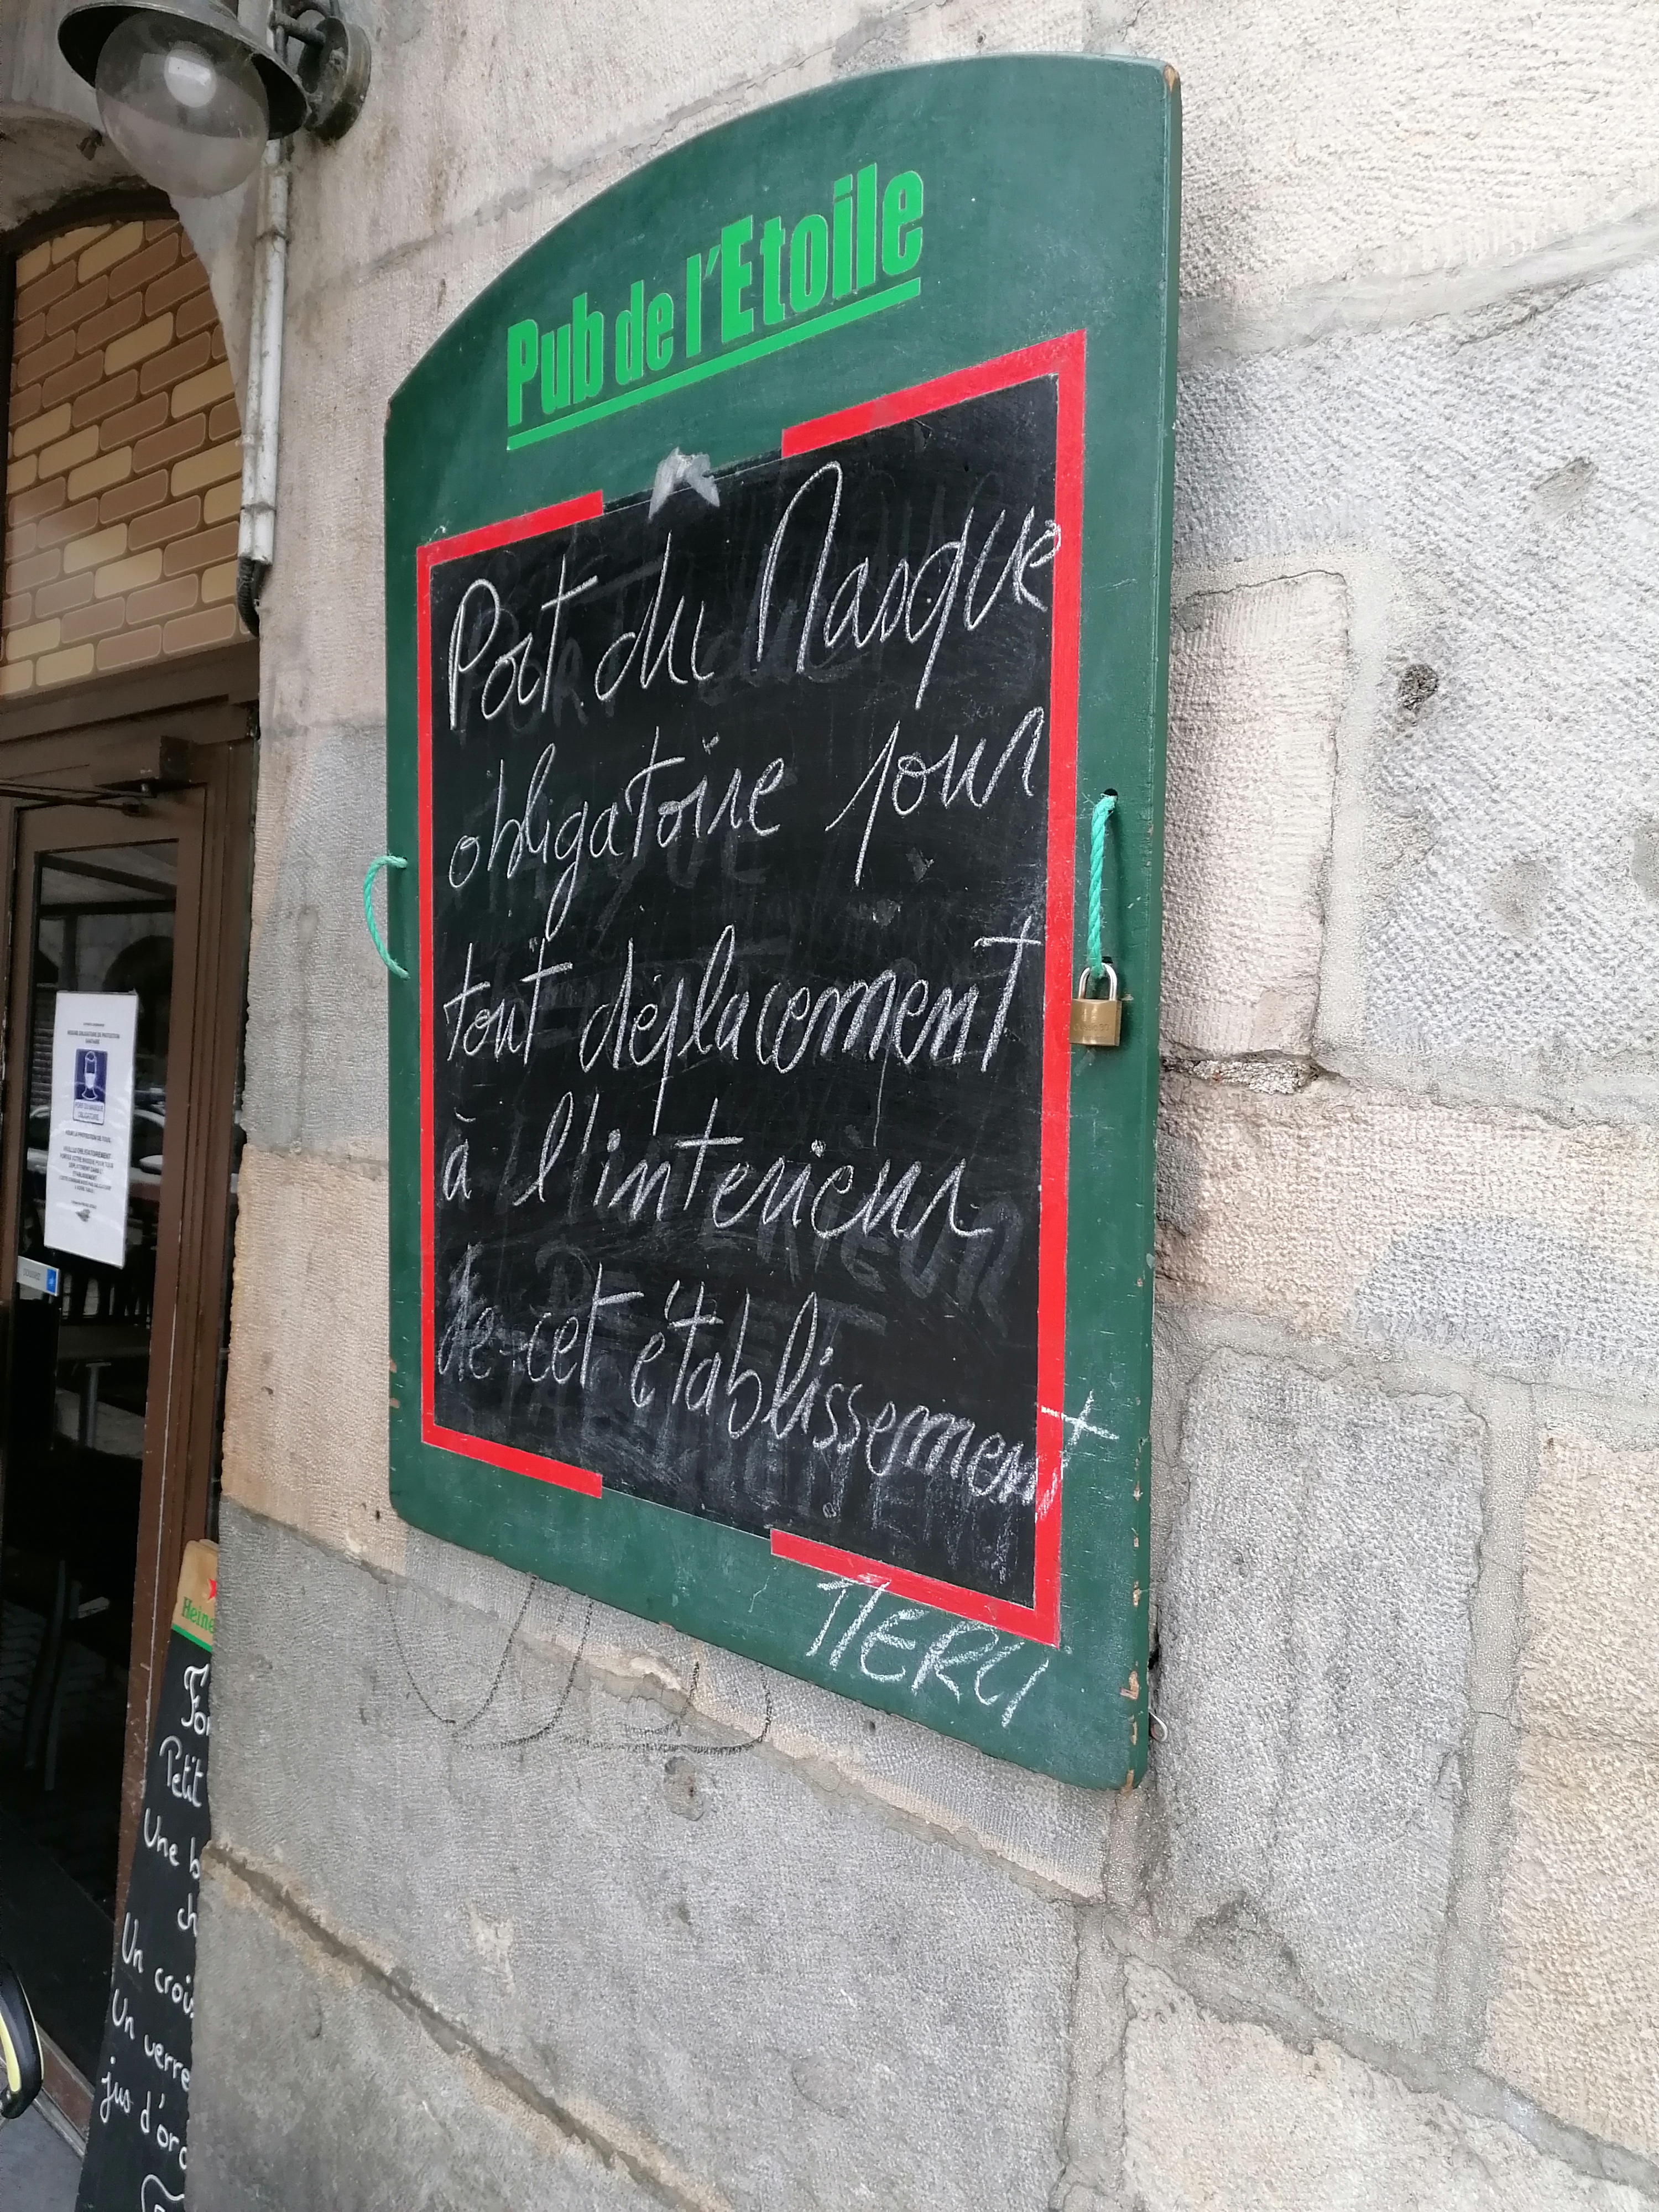 Pub de l'Etoile
Port du Masque
obligatoire pour
tout déplacement
à l'interieur
de cet établissement
MERCI
Heine
For
Petit
Une b
ch
Un croi
Un verre
jus d'ora